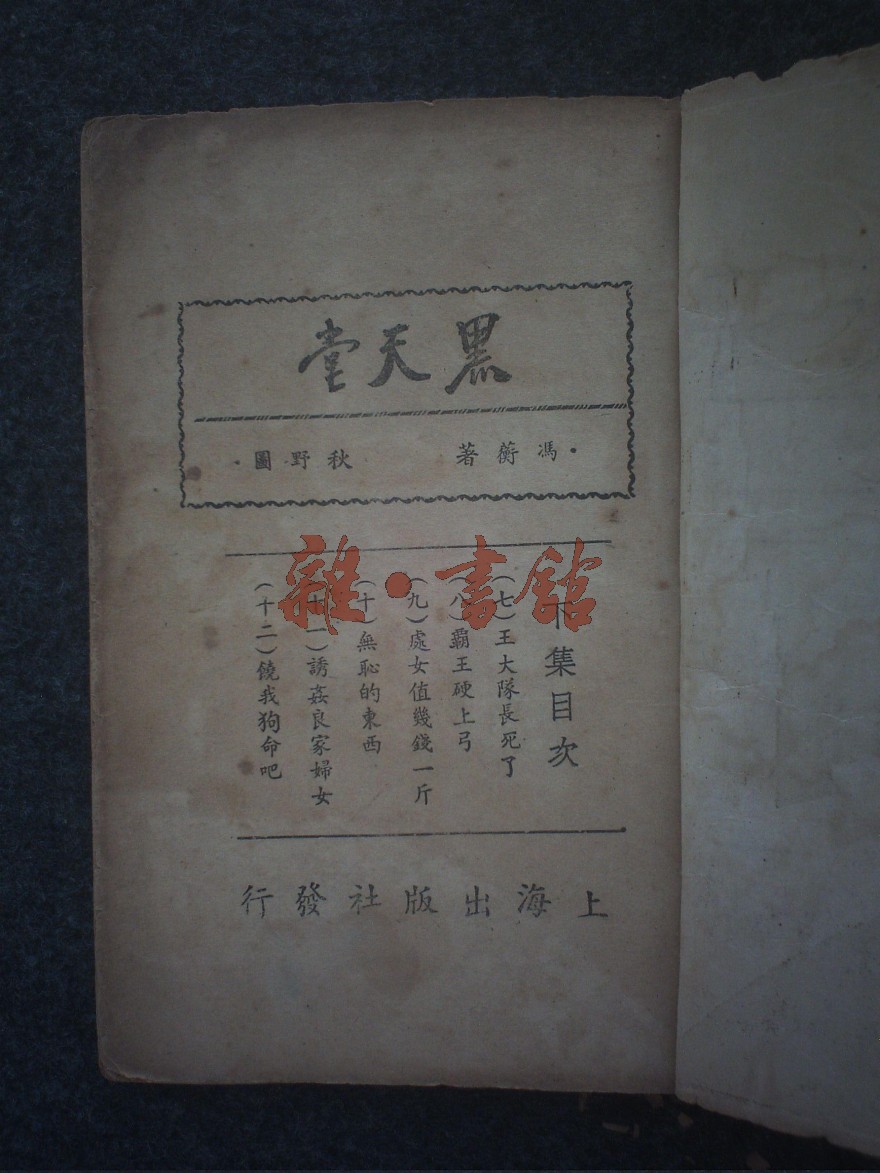 黑天堂
·馮蘅著　秋野圖·
下集目次
(七)王大隊長死了
(八)覇王硬上弓
(九)處女值幾錢一斤
(十)無恥的東西
(十一)誘姦良家婦女
(十二)饒我狗命吧
上海出版社發行
雜·書館